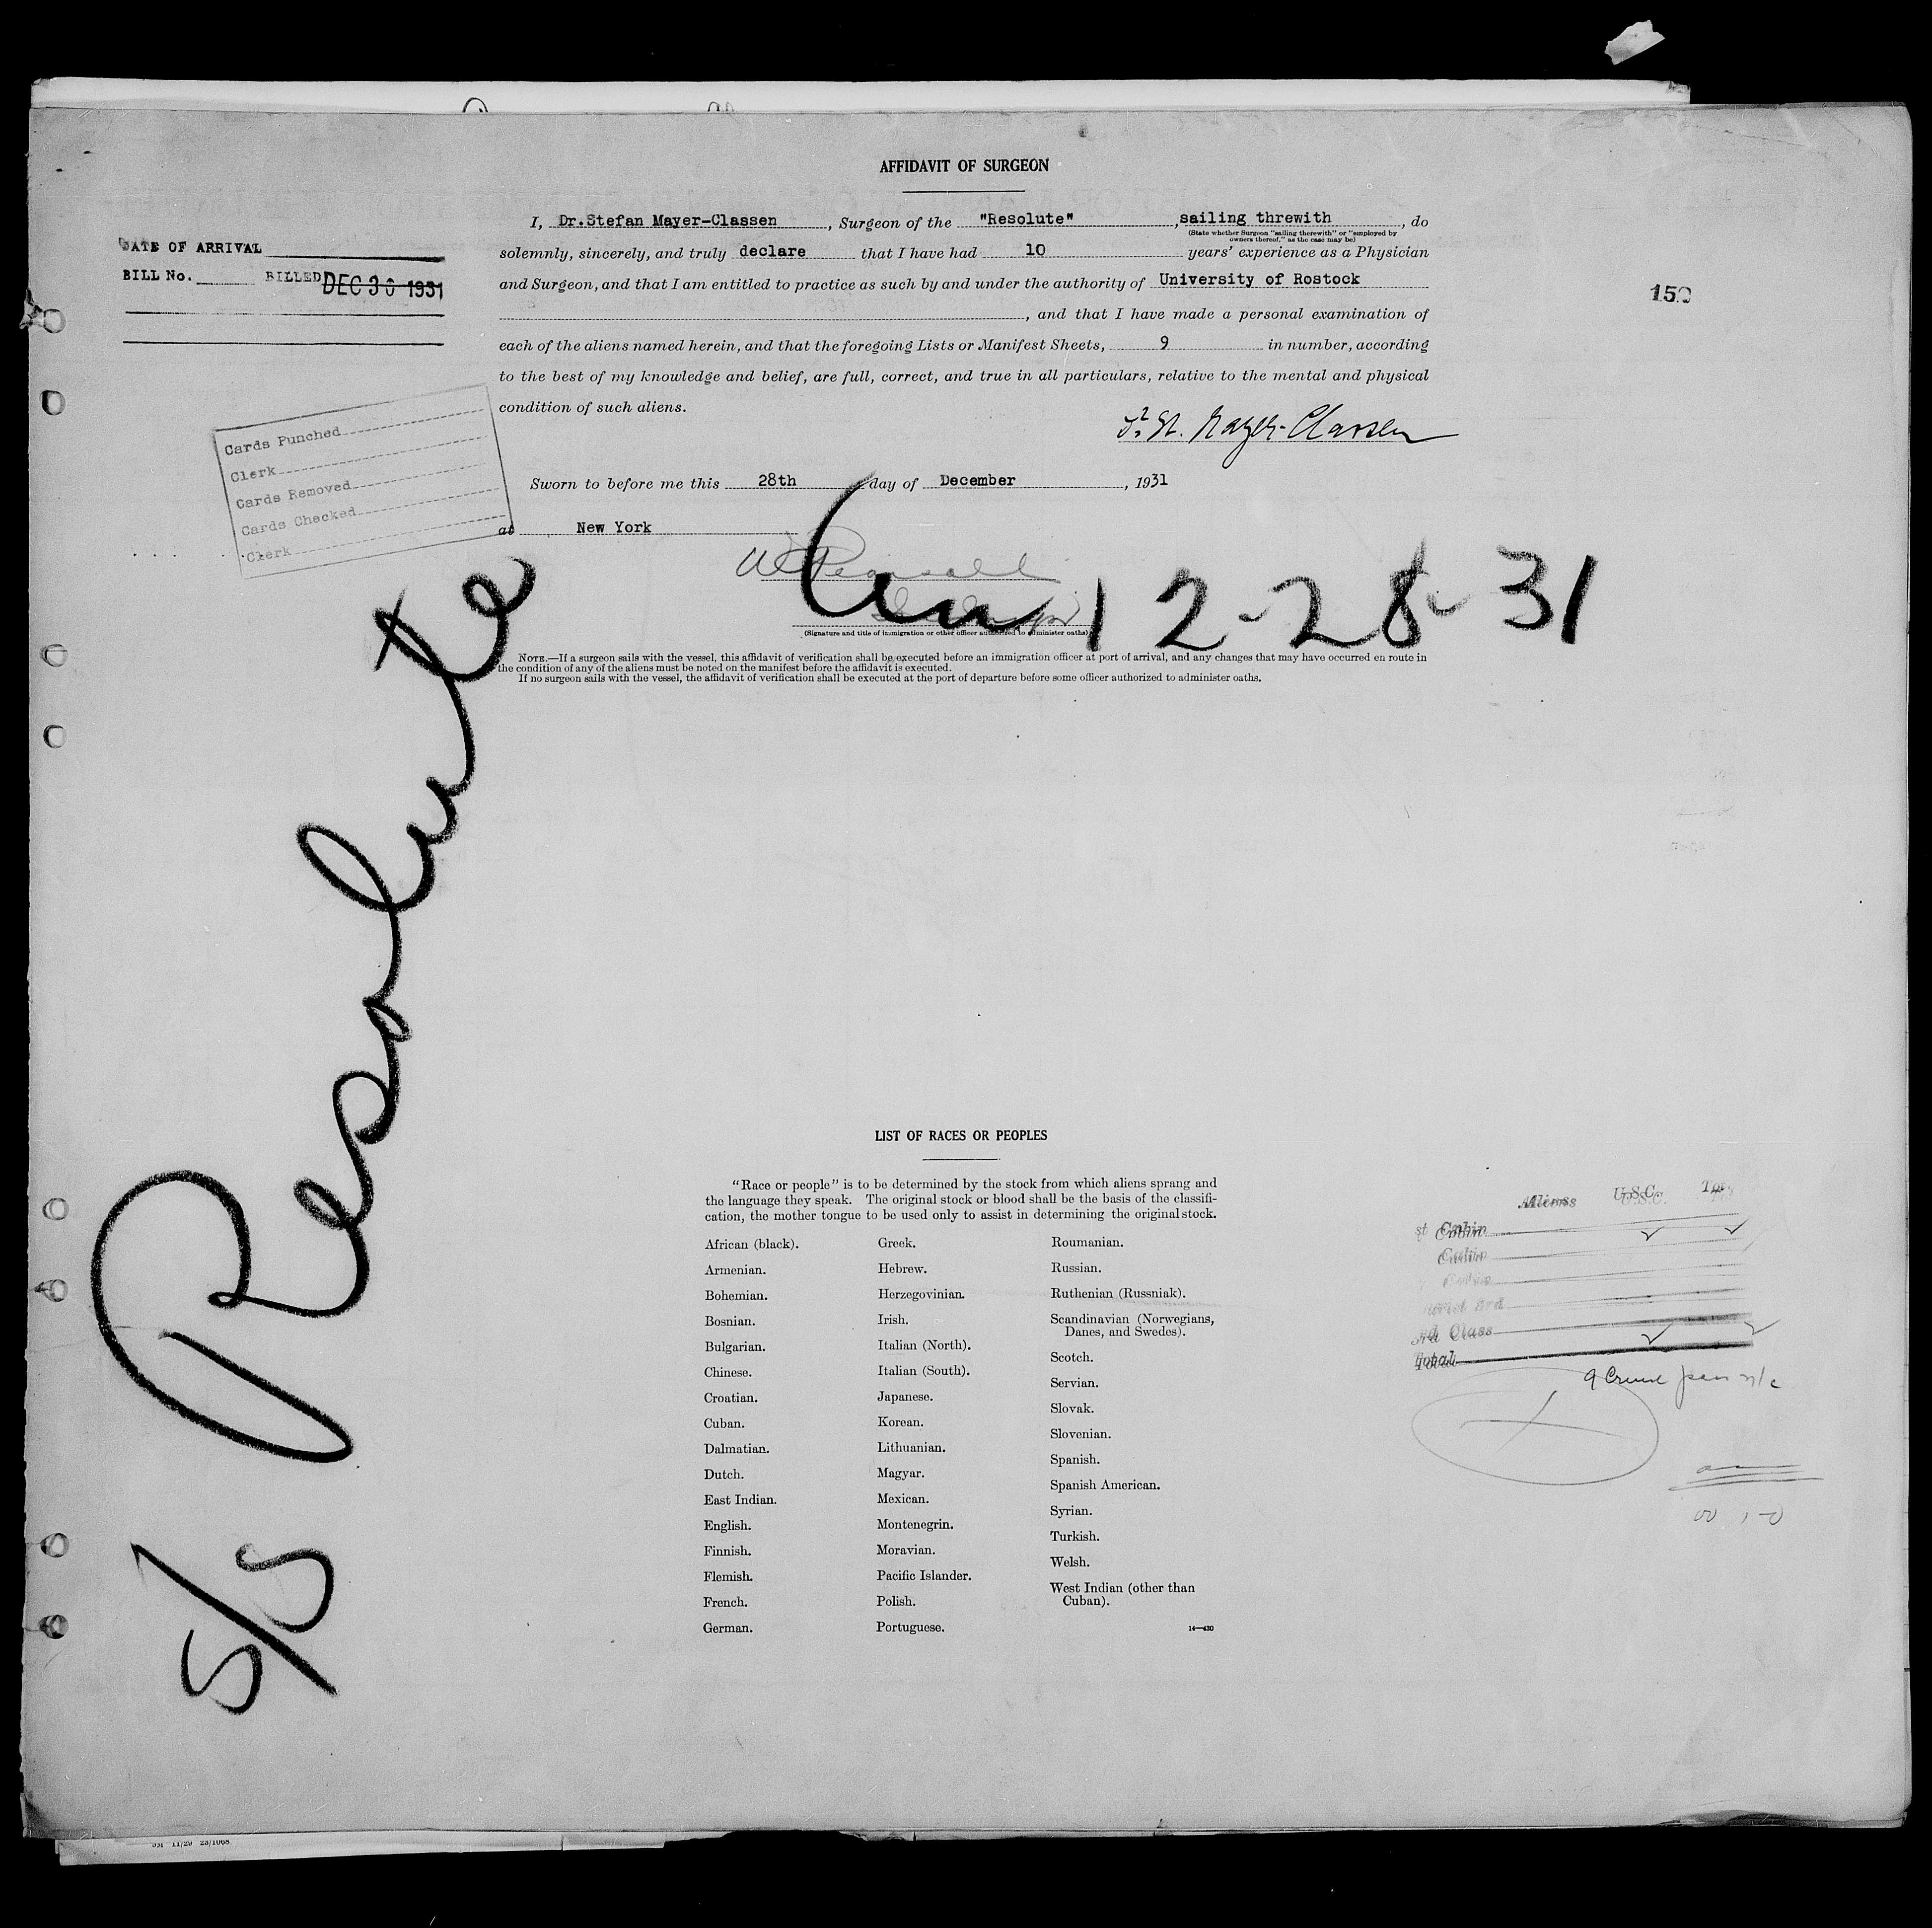 AFFIDAVIT OF SURGEON
I, Dr.Stefan Mayer-Classen, Surgeon of the "Resolute", sailing threwith, do
(State whether Surgeon "sailing therewith" or "employed by
owners thereof," as the case may be)
solemnly, sincerely, and truly declare that I have had 10 years' experience as a Physician
and Surgeon, and that I am entitled to practice as such by and under the authority of University of Rostock
, and that I have made a personal examination of
each of the aliens named herein, and that the foregoing Lists or Manifest Sheets, 9 in number, according
to the best of my knowledge and belief, are full, correct, and true in all particulars, relative to the mental and physical
condition of such aliens.
Dr. St. Mayer-Classen
Sworn to before me this 28th day of December, 1931
at New York
(Signature and title of immigration or other officer authorized to administer oaths)
NOTE.—If a surgeon sails with the vessel, this affidavit of verification shall be executed before an immigration officer at port of arrival, and any changes that may have occurred en route in
the condition of any of the aliens must be noted on the manifest before the affidavit is executed.
If no surgeon sails with the vessel, the affidavit of verification shall be executed at the port of departure before some officer authorized to administer oaths.
DATE OF ARRIVAL
BILL No. BILLED DEC 30 1931
Cards Punched
Clerk
Cards Removed
Cards Checked
Clerk
150
12-28-31
S/S Resolute
LIST OF RACES OR PEOPLES
"Race or people" is to be determined by the stock from which aliens sprang and
the language they speak. The original stock or blood shall be the basis of the classifi-
cation, the mother tongue to be used only to assist in determining the original stock.
African (black).
Armenian.
Bohemian.
Bosnian.
Bulgarian.
Chinese.
Croatian.
Cuban.
Dalmatian.
Dutch.
East Indian.
English.
Finnish.
Flemish.
French.
German.
Greek.
Hebrew.
Herzegovinian.
Irish.
Italian (North).
Italian (South).
Japanese.
Korean.
Lithuanian.
Magyar.
Mexican.
Montenegrin.
Moravian.
Pacific Islander.
Polish.
Portuguese.
Roumanian.
Russian.
Ruthenian (Russniak).
Scandinavian (Norwegians,
Danes, and Swedes).
Scotch.
Servian.
Slovak.
Slovenian.
Spanish.
Spanish American.
Syrian.
Turkish.
Welsh.
West Indian (other than
Cuban).
14—430
Aliens U.S.C.
st Cabin
Cabin
Cabin
3rd Class
Total